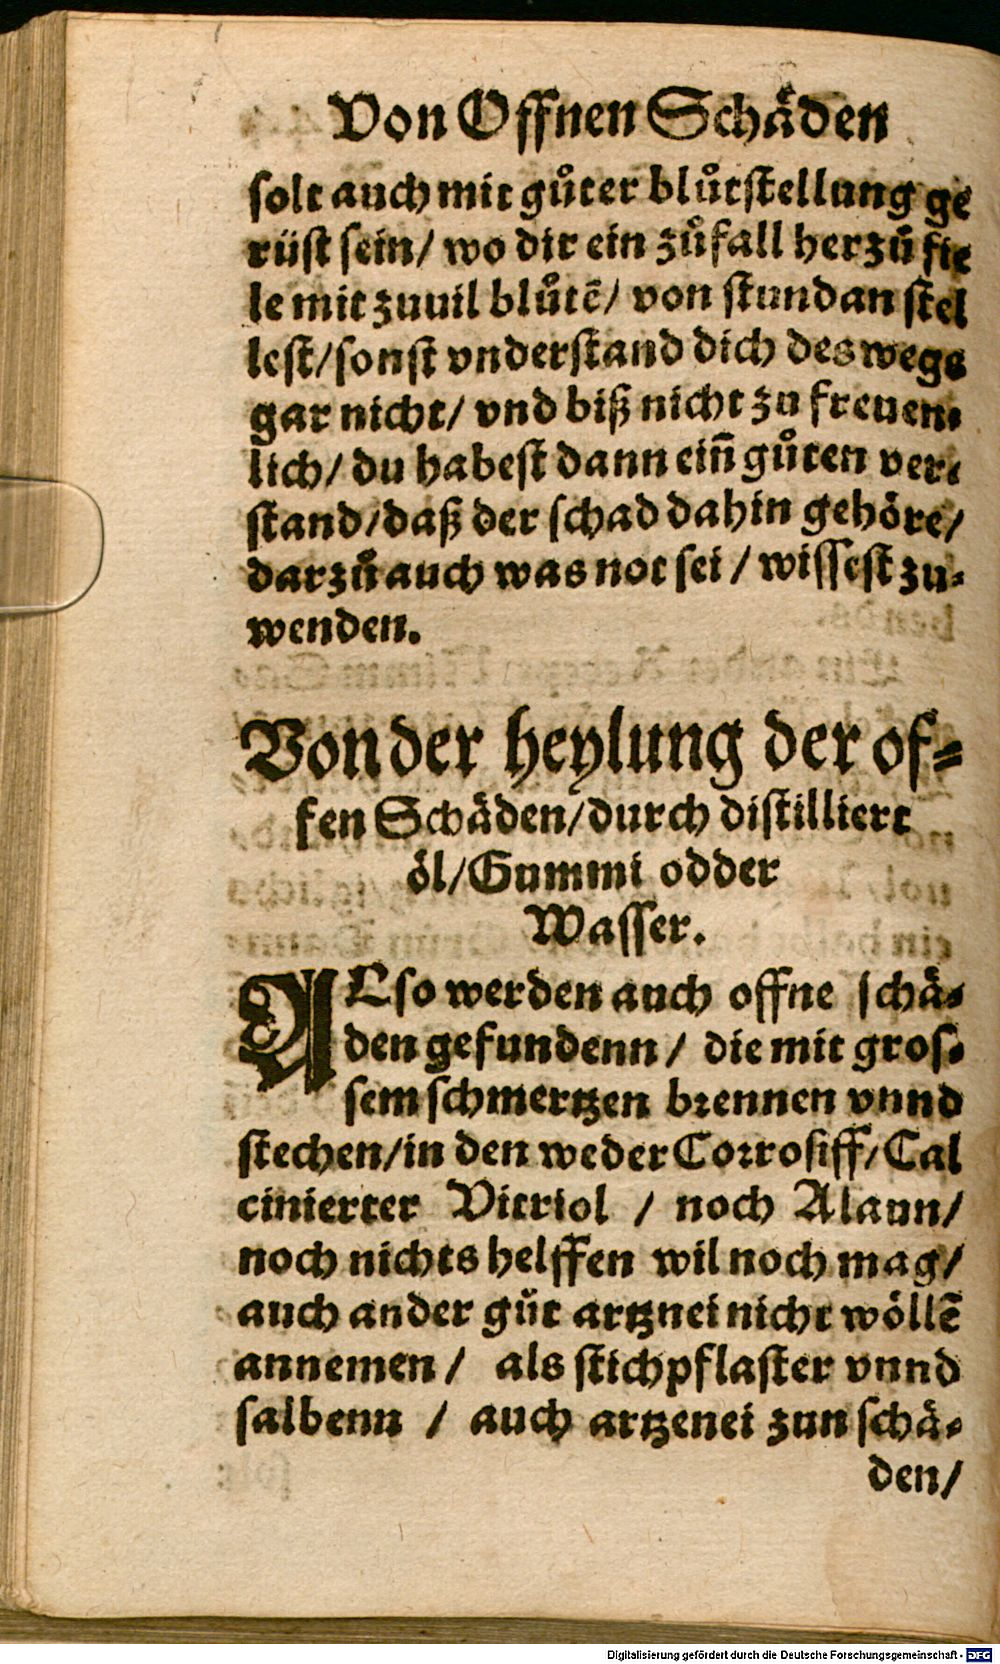 Von Offnen Schäden
solt auch mit gůter blůtstellung ge
rüst sein/ wo dir ein zůfall herzů fie
le mit zuuil blůtē/ von stundan stel
lest/ sonst vnderstand dich des wegs
gar nicht/ vnd biß nicht zu freuen⸗
lich/ du habest dann eiñ gůten ver⸗
stand/ daß der schad dahin gehöre/
darzů auch was not sei / wissest zu⸗
wenden.
Von der heylung der of⸗
fen Schäden/ durch distilliert
öl/ Gummi odder
Wasser.
ALso werden auch offne schä⸗
den gefundenn / die mit gros⸗
sem schmertzen brennen vnnd
stechen/ in den weder Corrosiff/ Cal
cinierter Vitriol / noch Alaun/
noch nichts helffen wil noch mag/
auch ander gůt artznei nicht wöllē
annemen / als stichpflaster vnnd
salbenn / auch artzenei zun schä⸗
den/
Digitalisierung gefördert durch die Deutsche Forschungsgemeinschaft - DFG